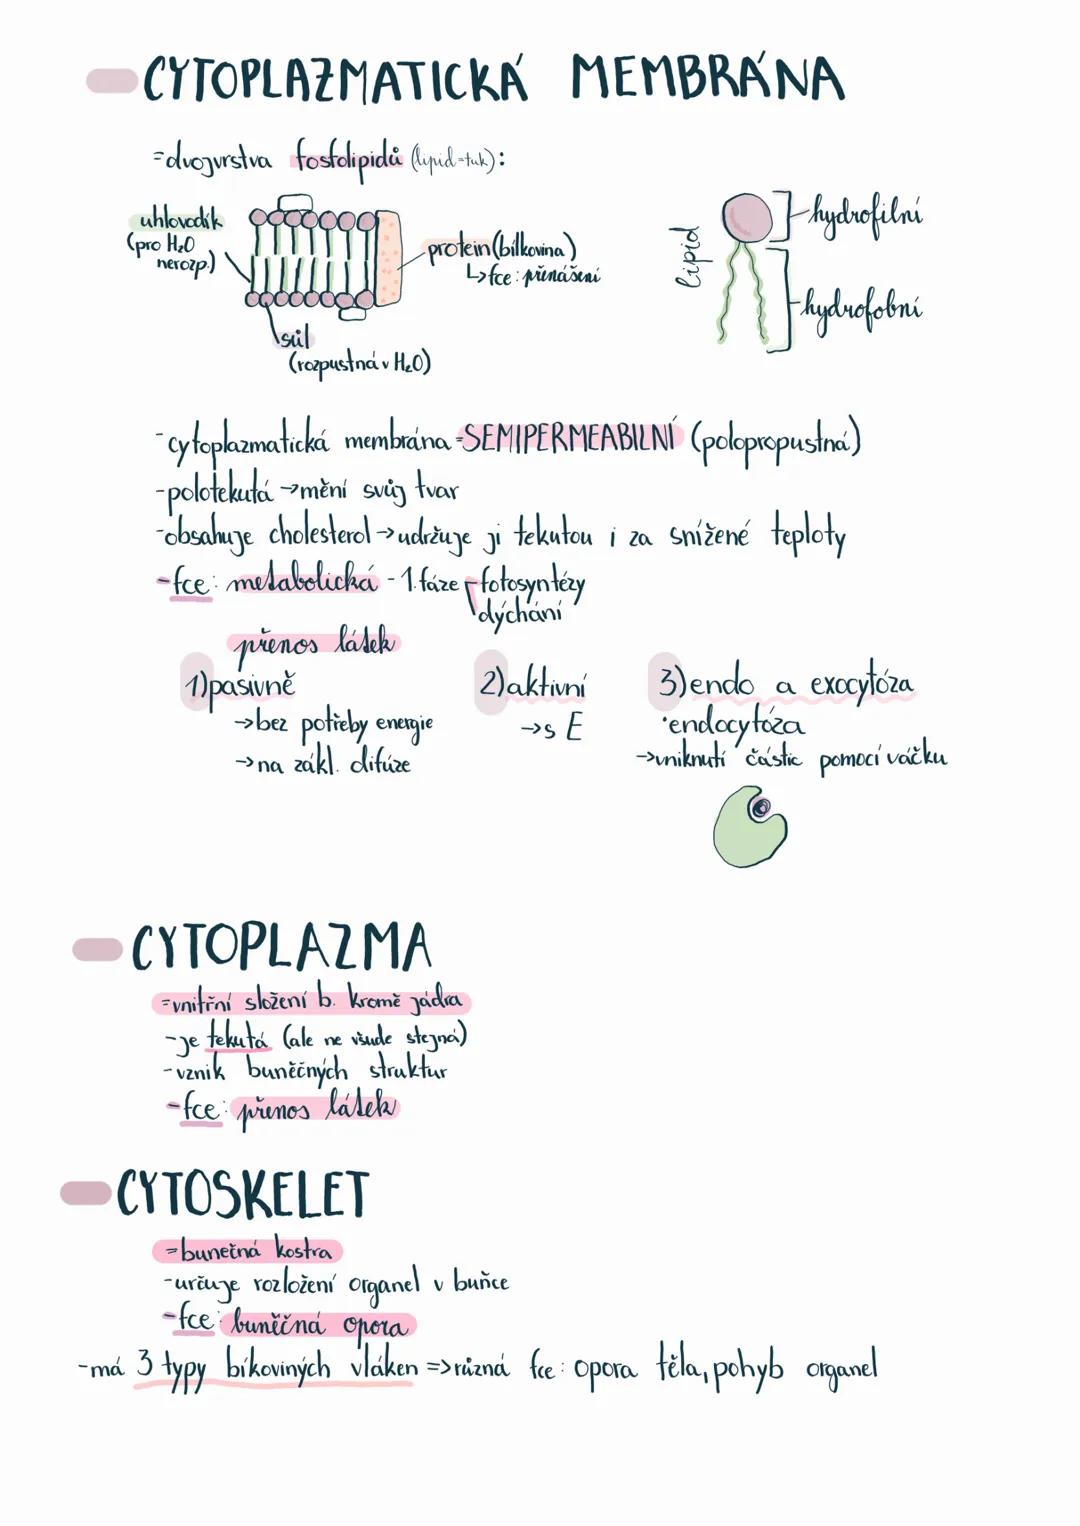 CYTOPLAZMATICKÁ MEMBRÁNA
=dvojvrstva fosfolipidů (lipid=tuk):
uhlovodík
(pro H₂O
nerozp.)
protein (bílkovina)
↳fce: přenášení
sůl
(rozpustná v H₂O)
lipid
-hydrofilní
-hydrofobní
-cytoplazmatická membrána=SEMIPERMEABILNÍ (polopropustná)
-polotekutá →mění svůj tvar
-obsahuje cholesterol→udržuje ji tekutou i za snížené teploty
-fce: metabolická - 1. fáze fotosyntézy
dýchání
přenos látek
1)pasivně
→bez potřeby energie
→na zákl. difúze
2)aktivní
→s E
3)endo a exocytóza
·endocytóza
→vniknutí částic pomocí váčku
CYTOPLAZMA
=vnitřní složení b. kromě jádra
-je tekutá (ale ne všude stejná)
-vznik buněčných struktur
-fce: přenos látek
CYTOSKELET
=bunečná kostra
-určuje rozložení organel v buňce
-fce: buněčná opora
-má 3 typy bíkoviných vláken =>různá fce: opora těla, pohyb organel